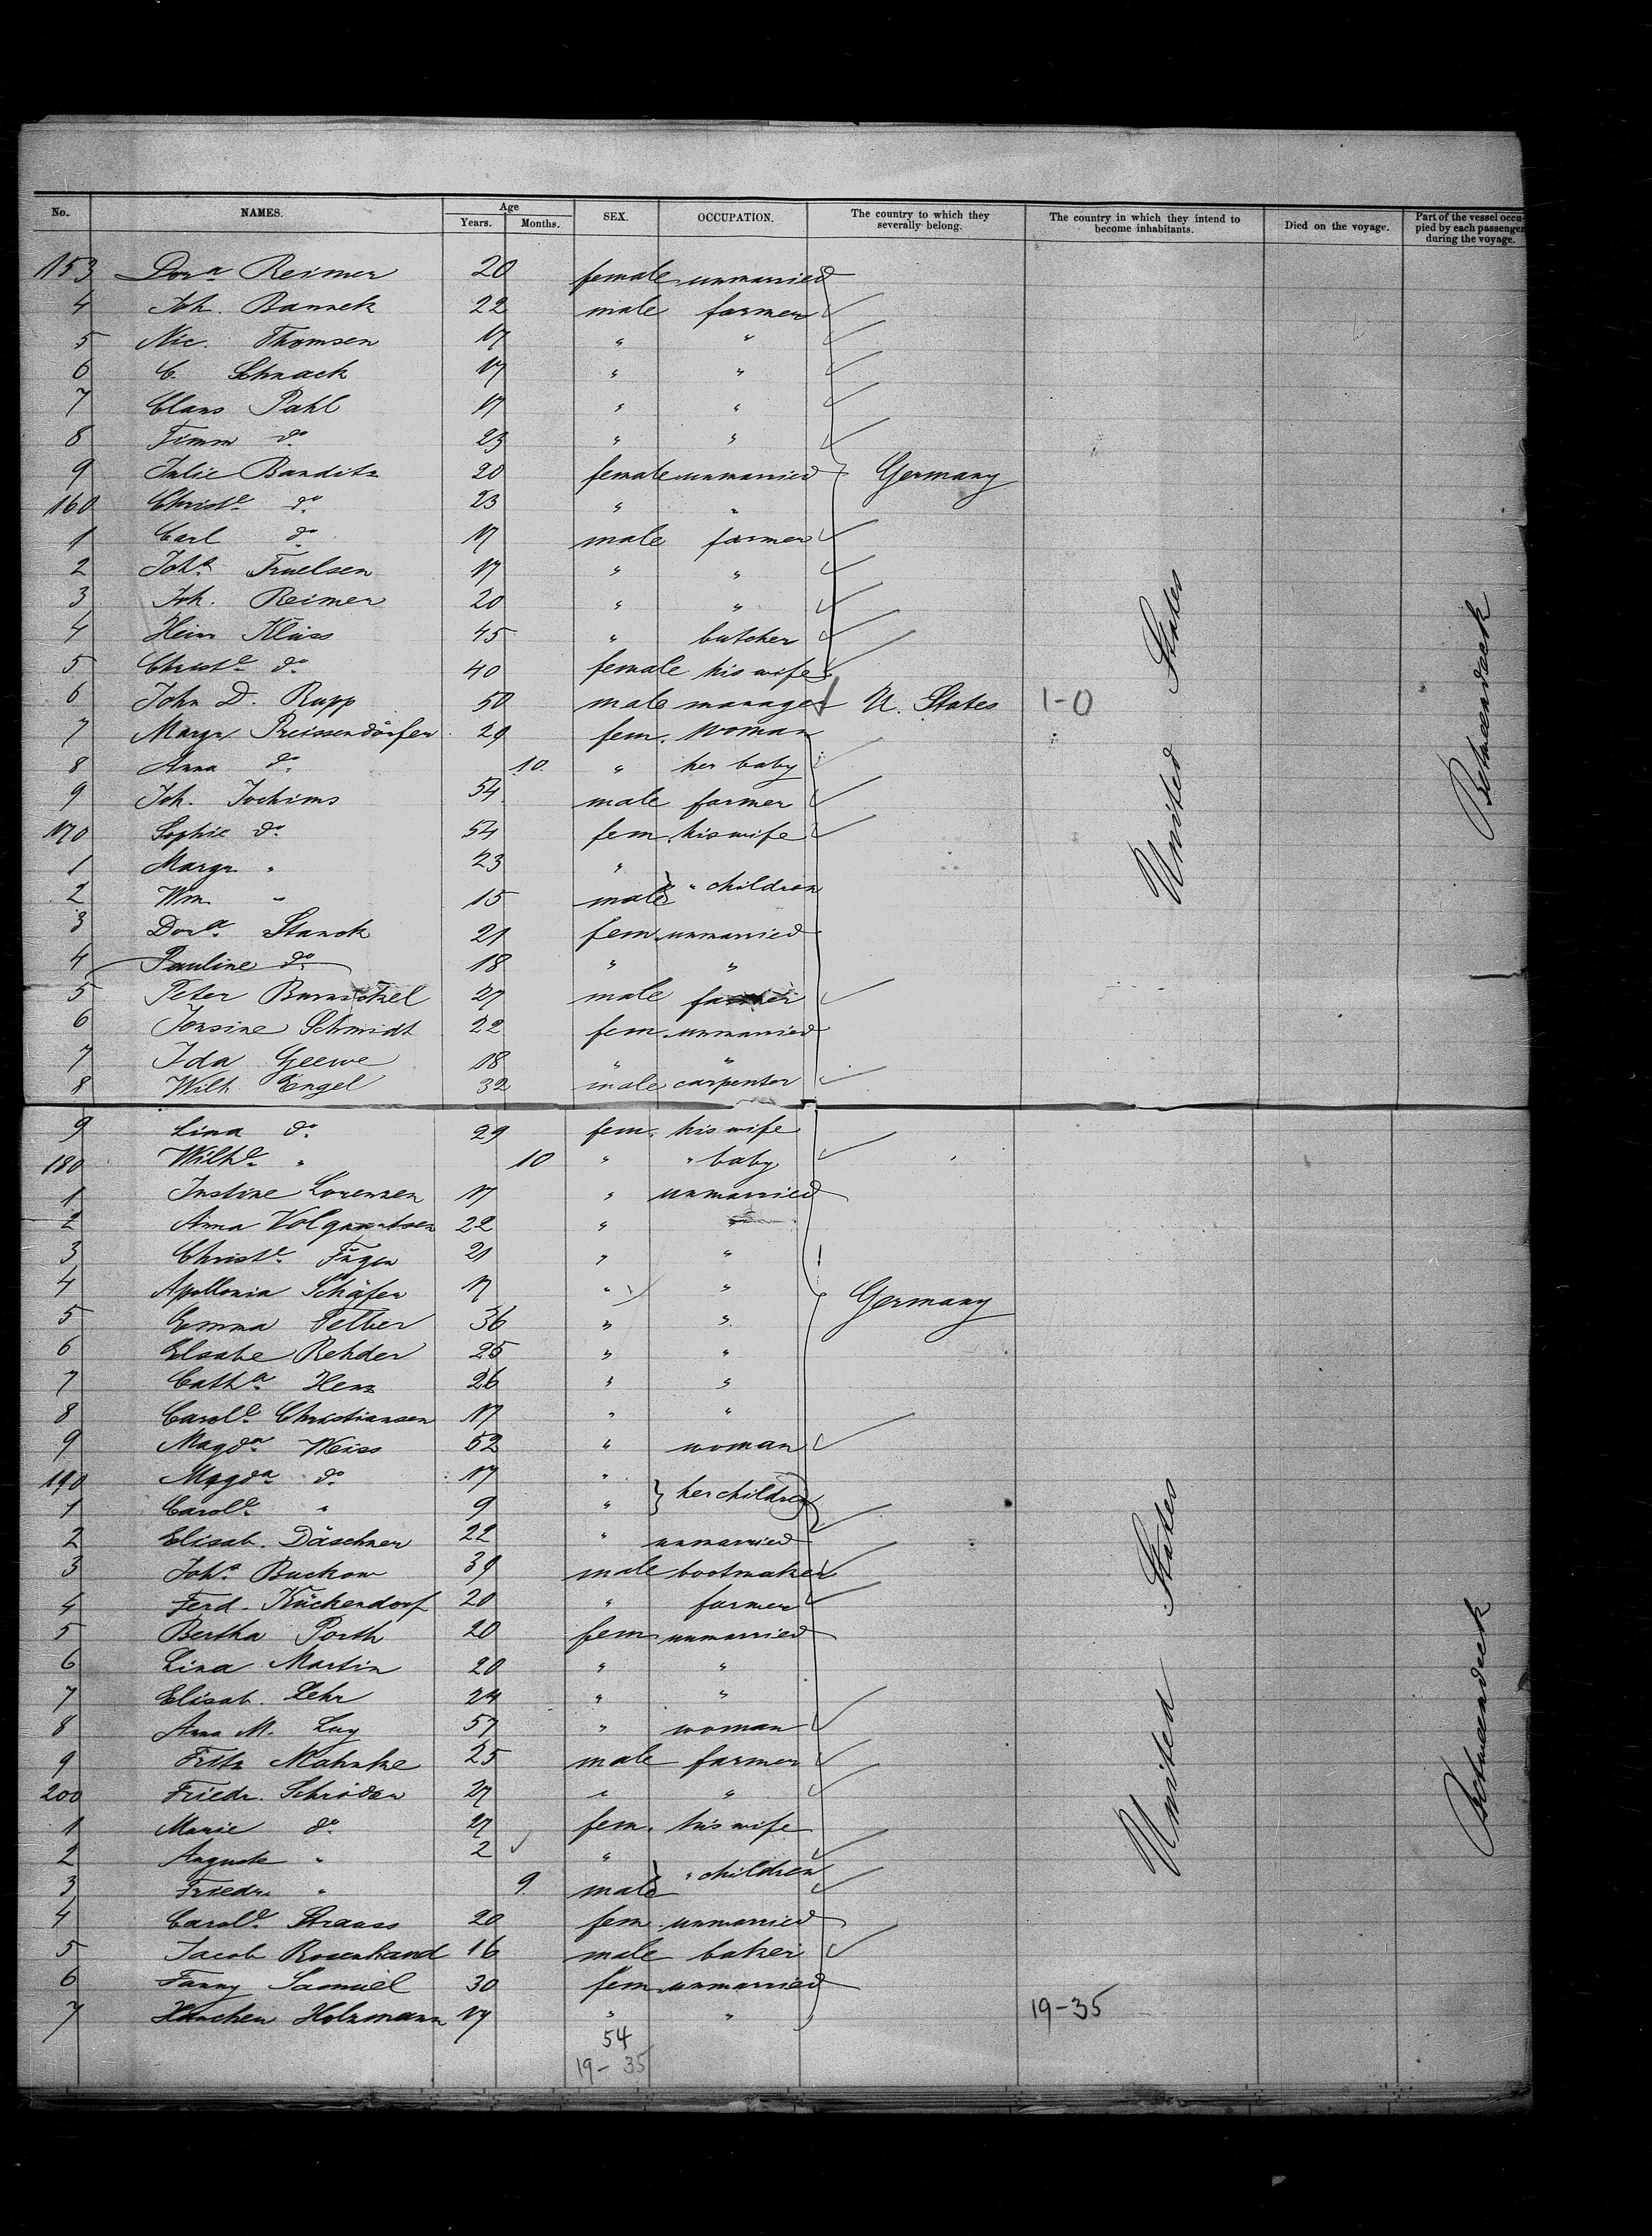 No. NAMES. Age Years. Months. SEX. OCCUPATION. The country to which they severally belong. The country in which they intend to become inhabitants. Died on the voyage. Part of the vessel occupied by each passenger during the voyage.
153 Dora Reimer 20 female unmarried
4 Joh. Bannek 22 male farmer
5 Nic. Thomsen 17 " "
6 C. Schnack 17 " "
7 Claus Pahl 17 " "
8 Timm do 23 " "
9 Julie Banditz 20 female unmarried Germany
160 Christe do 23 " "
1 Carl do 17 male farmer
2 Johs Truelsen 17 " "
3 Joh. Reimer 20 " "
4 Hein Klüss 45 " butcher
5 Christe do 40 female his wife
6 John D. Rupp 50 male manager U. States 1-0
7 Margr. Preissendörfer 29 fem. woman
8 Anna do 10 " her baby
9 Joh. Jochims 54 male farmer
170 Sophie do 54 fem. his wife
1 Margr. " 23 "
2 Wm. " 15 male " children
3 Dora Stanck 21 fem. unmarried
4 Pauline do 18 " "
5 Peter 27 male farmer
6 Jensine Schmidt 22 fem. unmarried
7 Ida Geewe 18 " "
8 Wilh Engel 32 male carpenter
9 Lina do 29 fem. his wife
180 Wilhe " 10 " " baby
1 Justine Lorenzen 17 " unmarried
2 Anna 22 " "
3 Christe 21 " "
4 Apollonia Schäfer 17 " "
5 Emma 36 " " Germany
6 Elsabe Rehder 25 " "
7 Catha Henz 26 " "
8 Carole Christiansen 17 " "
9 Magda Weiss 52 " woman
190 Magda do 17 "
1 Carole " 9 " her children
2 Elisab. Däschner 22 " unmarried
3 Johs Buckow 39 male bootmaker
4 Ferd. Küchendorf 20 " farmer
5 Bertha Porth 20 fem unmarried
6 Lina Martin 20 " "
7 Elisab. Lehr 24 " "
8 Anna M. Luy 57 " woman
9 Fritz Mahnke 25 male farmer
200 Friedr. Schröder 27 " "
1 Marie do 27 fem. his wife
2 Auguste " 2 "
3 Friedr. " 9 male " children
4 Carole Strauss 20 fem unmarried
5 Jacob Rosenhand 16 male baker
6 Fanny Samuel 30 fem unmarried
7 Hanchen Holzmann 17 " " 19-35
54
19-35
United States
Betweendeck
United States
Betweendeck